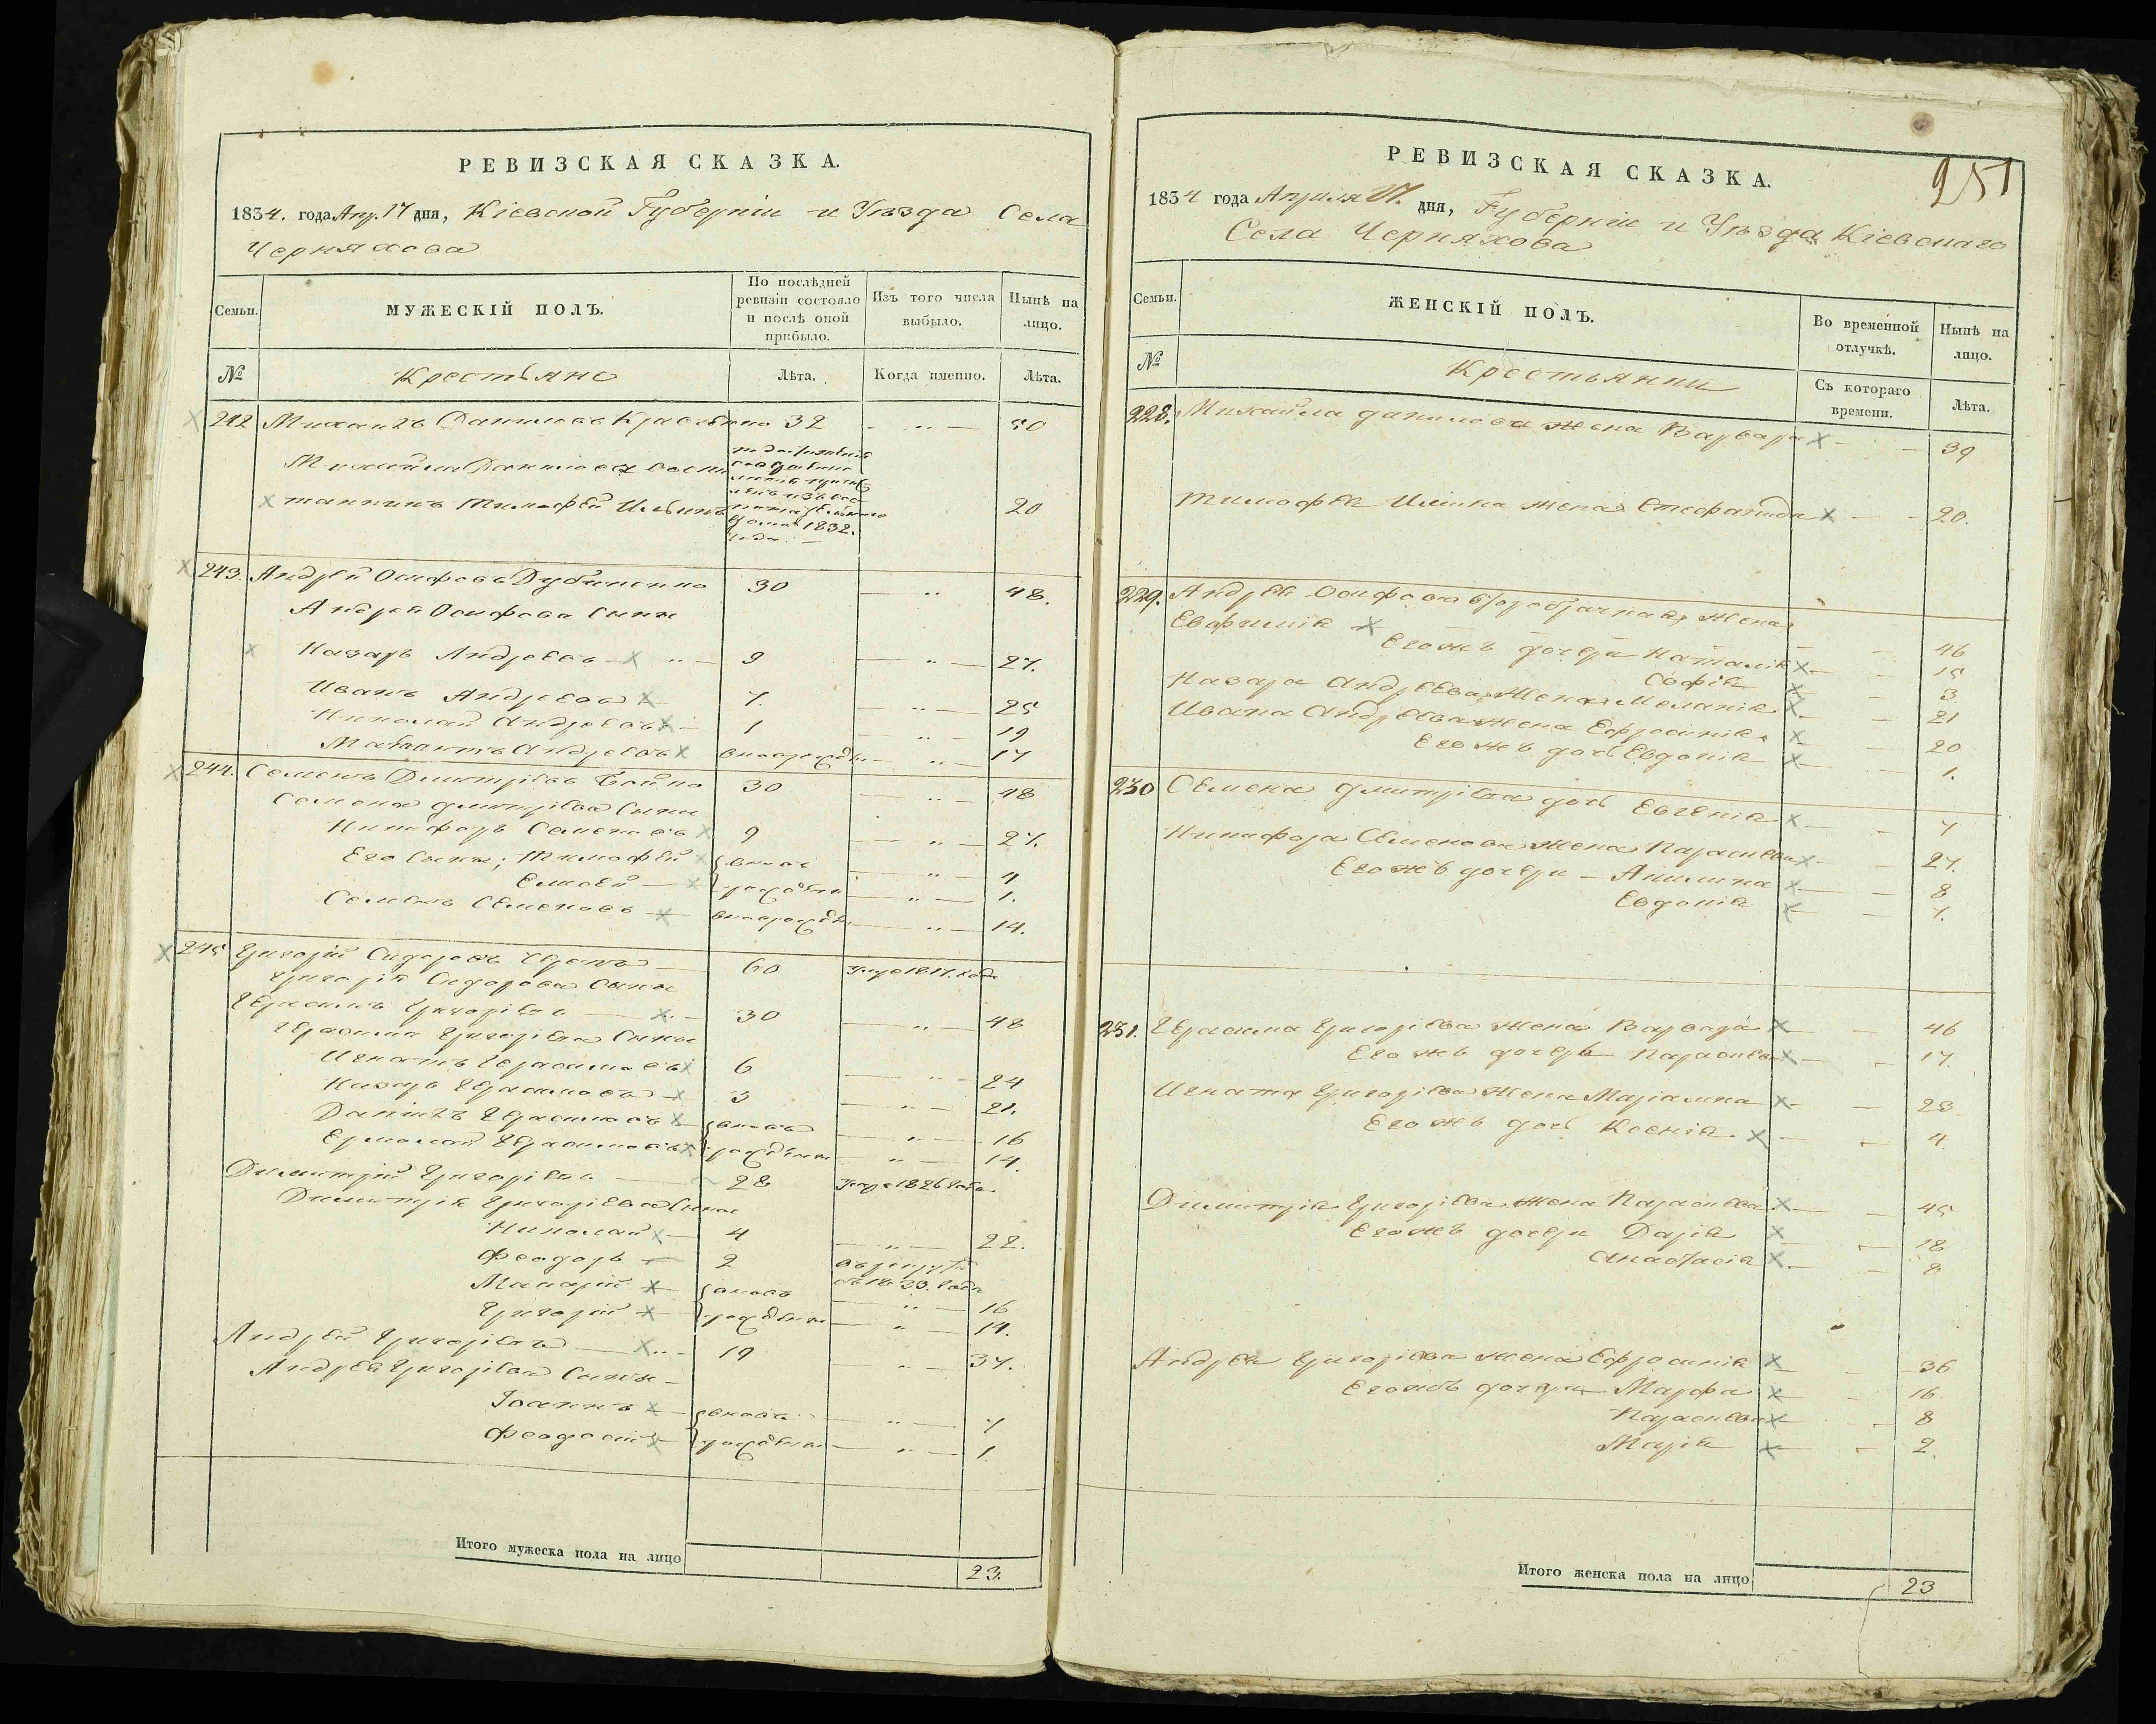 РЕВИЗСКАЯ СКАЗКА.
1834. года Апр. 17 дня, Кіевской Губерніи и Уѣзда Села
Черняхова
Семьи.
МУЖЕСКІЙ ПОЛЪ.
По послѣдней ревизіи состояло и послѣ оной прибыло.
Изъ того числа выбыло.
Нынѣ на лицо.
№
Крестьяне
Лѣта.
Когда именно.
Лѣта.
242 Михаилъ Даниловъ 32 - " - 50
Михайла Данилова
Тимофѣй Ильинъ 1832. 20
243. Андрей Осифовъ Дубиненко 30 - " - 48.
Андрея Осифова Сыны
Назаръ Андреевъ - " - 9 - " - 27.
Иванъ Андреевъ 7. - " - 25
Николай Андреевъ - 1 - " - 19
Андреевъ - " - 17
244. Семенъ Дмитріевъ Бойко 30 - " - 48
Семена Дмитріева Сыны
Никифоръ Семеновъ 9 - " - 27.
Его Сыны; Тимофѣй вновь - " - 4
Елисей - рождены - " - 1.
Семенъ Семеновъ - - " - 14.
245 Григорій Сидоровъ 60
Григорія Сидорова Сыны
Герасимъ Григоріевъ - " - 30 - " - 48
Герасима Григоріева Сыны
Игнатъ Герасимовъ 6 - " - 24
Назаръ Герасимовъ - 3 - " - 21.
Даніилъ Герасимовъ - вновь - " - 16
Ермолай Герасимовъ рождены - " - 14.
Димитрій Григоріевъ - 28 1826 года
Димитрія Григоріева Сыны
Николай - 4 - " - 22.
Феодоръ - 2 въ рекруты
Макарій - вновь - " - 16
Григорій - рождены - " - 14.
Андрей Григоріевъ - " - 19 - " - 37.
Андрея Григоріева Сыны -
Іоаннъ - вновь - " - 7
Феодосій - рождены - " - 1.
Итого мужеска пола на лицо 23.
РЕВИЗСКАЯ СКАЗКА.
251
1834 года Апреля 17. дня, Губерніи и Уѣзда Кіевскаго
Села Черняхова
Семьи.
ЖЕНСКІЙ ПОЛЪ.
Во временной отлучкѣ.
Нынѣ на лицо.
№
Крестьянки
Съ котораго времени.
Лѣта.
228. Михайла Данилова жена Варвара - - 39
Тимофѣя Илина жена Стефанида - - 20.
229. Андрея Осифова жена
Евфимія - - 46
Егожъ дочери Наталія - - 15
Софія - - 3
Назара Андреева жена Меланія - - 21
Ивана Андреева жена Ефросинія - - 20
Егожъ дочь Евдокія - - 1.
230 Семена Дмитріева дочь Евгенія - - 7
Никифора Семенова жена Параскева - - 27.
Егожъ дочери - Акилина - - 8
Евдокія - - 7.
231. Герасима Григоріева жена Варвара - - 46
Егожъ дочерь Параскева - - 17.
Игната Григоріева жена Маріамна - - 23
Егожъ дочь Ксенія. - - 4.
Димитрія Григоріева жена Параскева - - 45
Егожъ дочери Дарія - - 18
Анастасія - - 8
Андрея Григоріева жена Ефросинія - - 36
Егожъ дочери - Марфа - - 16
Параскева - - 8
Марія - - 2.
Итого женска пола на лицо 23